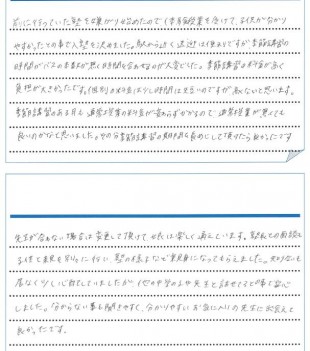 前に行っていた塾を嫌がり始めたので体験授業を受けて、子供が分かり
やすかったとの事で入塾を決めました。駅から近く送迎は便利ですが季節講習の
時間がバスの本数が無く時間を合わせるのが大変でした。季節講習の料金が高く
負担が大きかったです。(個別の料金は少し時間は短いのですが高くないと思います。
季節講習のある月も通常授業の料金が変わらずかかるので通常授業が無くても
良いのかなと思いました。その分季節講習の期間を長めにして頂けたら良かったです
先生が合わない場合は変更して頂けて女長は楽しく通えています。塾長との面談も
子供と意見を別々に行い、塾の様子など親身になってもらえました。知り合いも
居なくて少し心配していましたが、他の中学の子や先生と話せてると聞き安心
しました。分からない事も聞きやすく、分かりやすいお気に入りの先生に出会えて
良かったです。